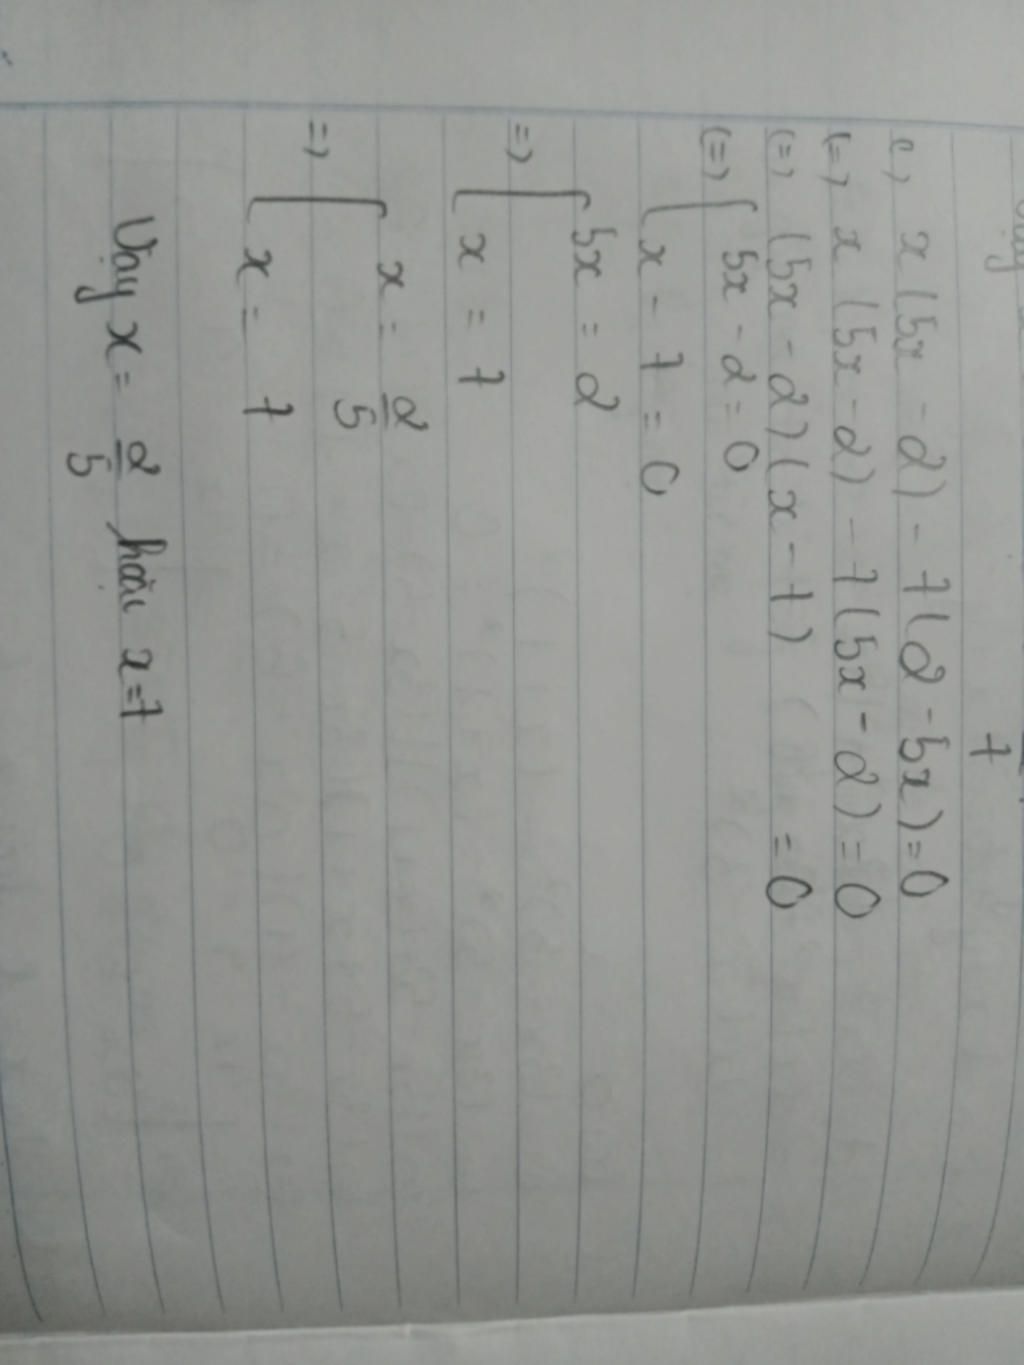 7
c) x(5x - 2) - 7(2 - 5x) = 0
(=) x(5x - 2) - 7(5x - 2) = 0
(=) (5x - 2)(x - 7) = 0
(=) [ 5x - 2 = 0
x - 7 = 0
=) [ 5x = 2
x = 7
=) [ x = 2/5
x = 7
Vậy x = 2/5 hoặc x = 7